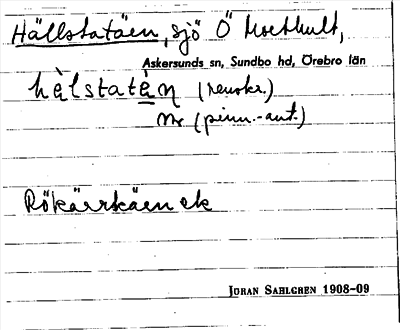 Hällstatäen, sjö Ö Mosthult,
Askersunds sn, Sundbo hd, Örebro län
hèlstatèn (renskr.)
Rökärrkäen ek
JÖRAN SAHLGREN 1908-09